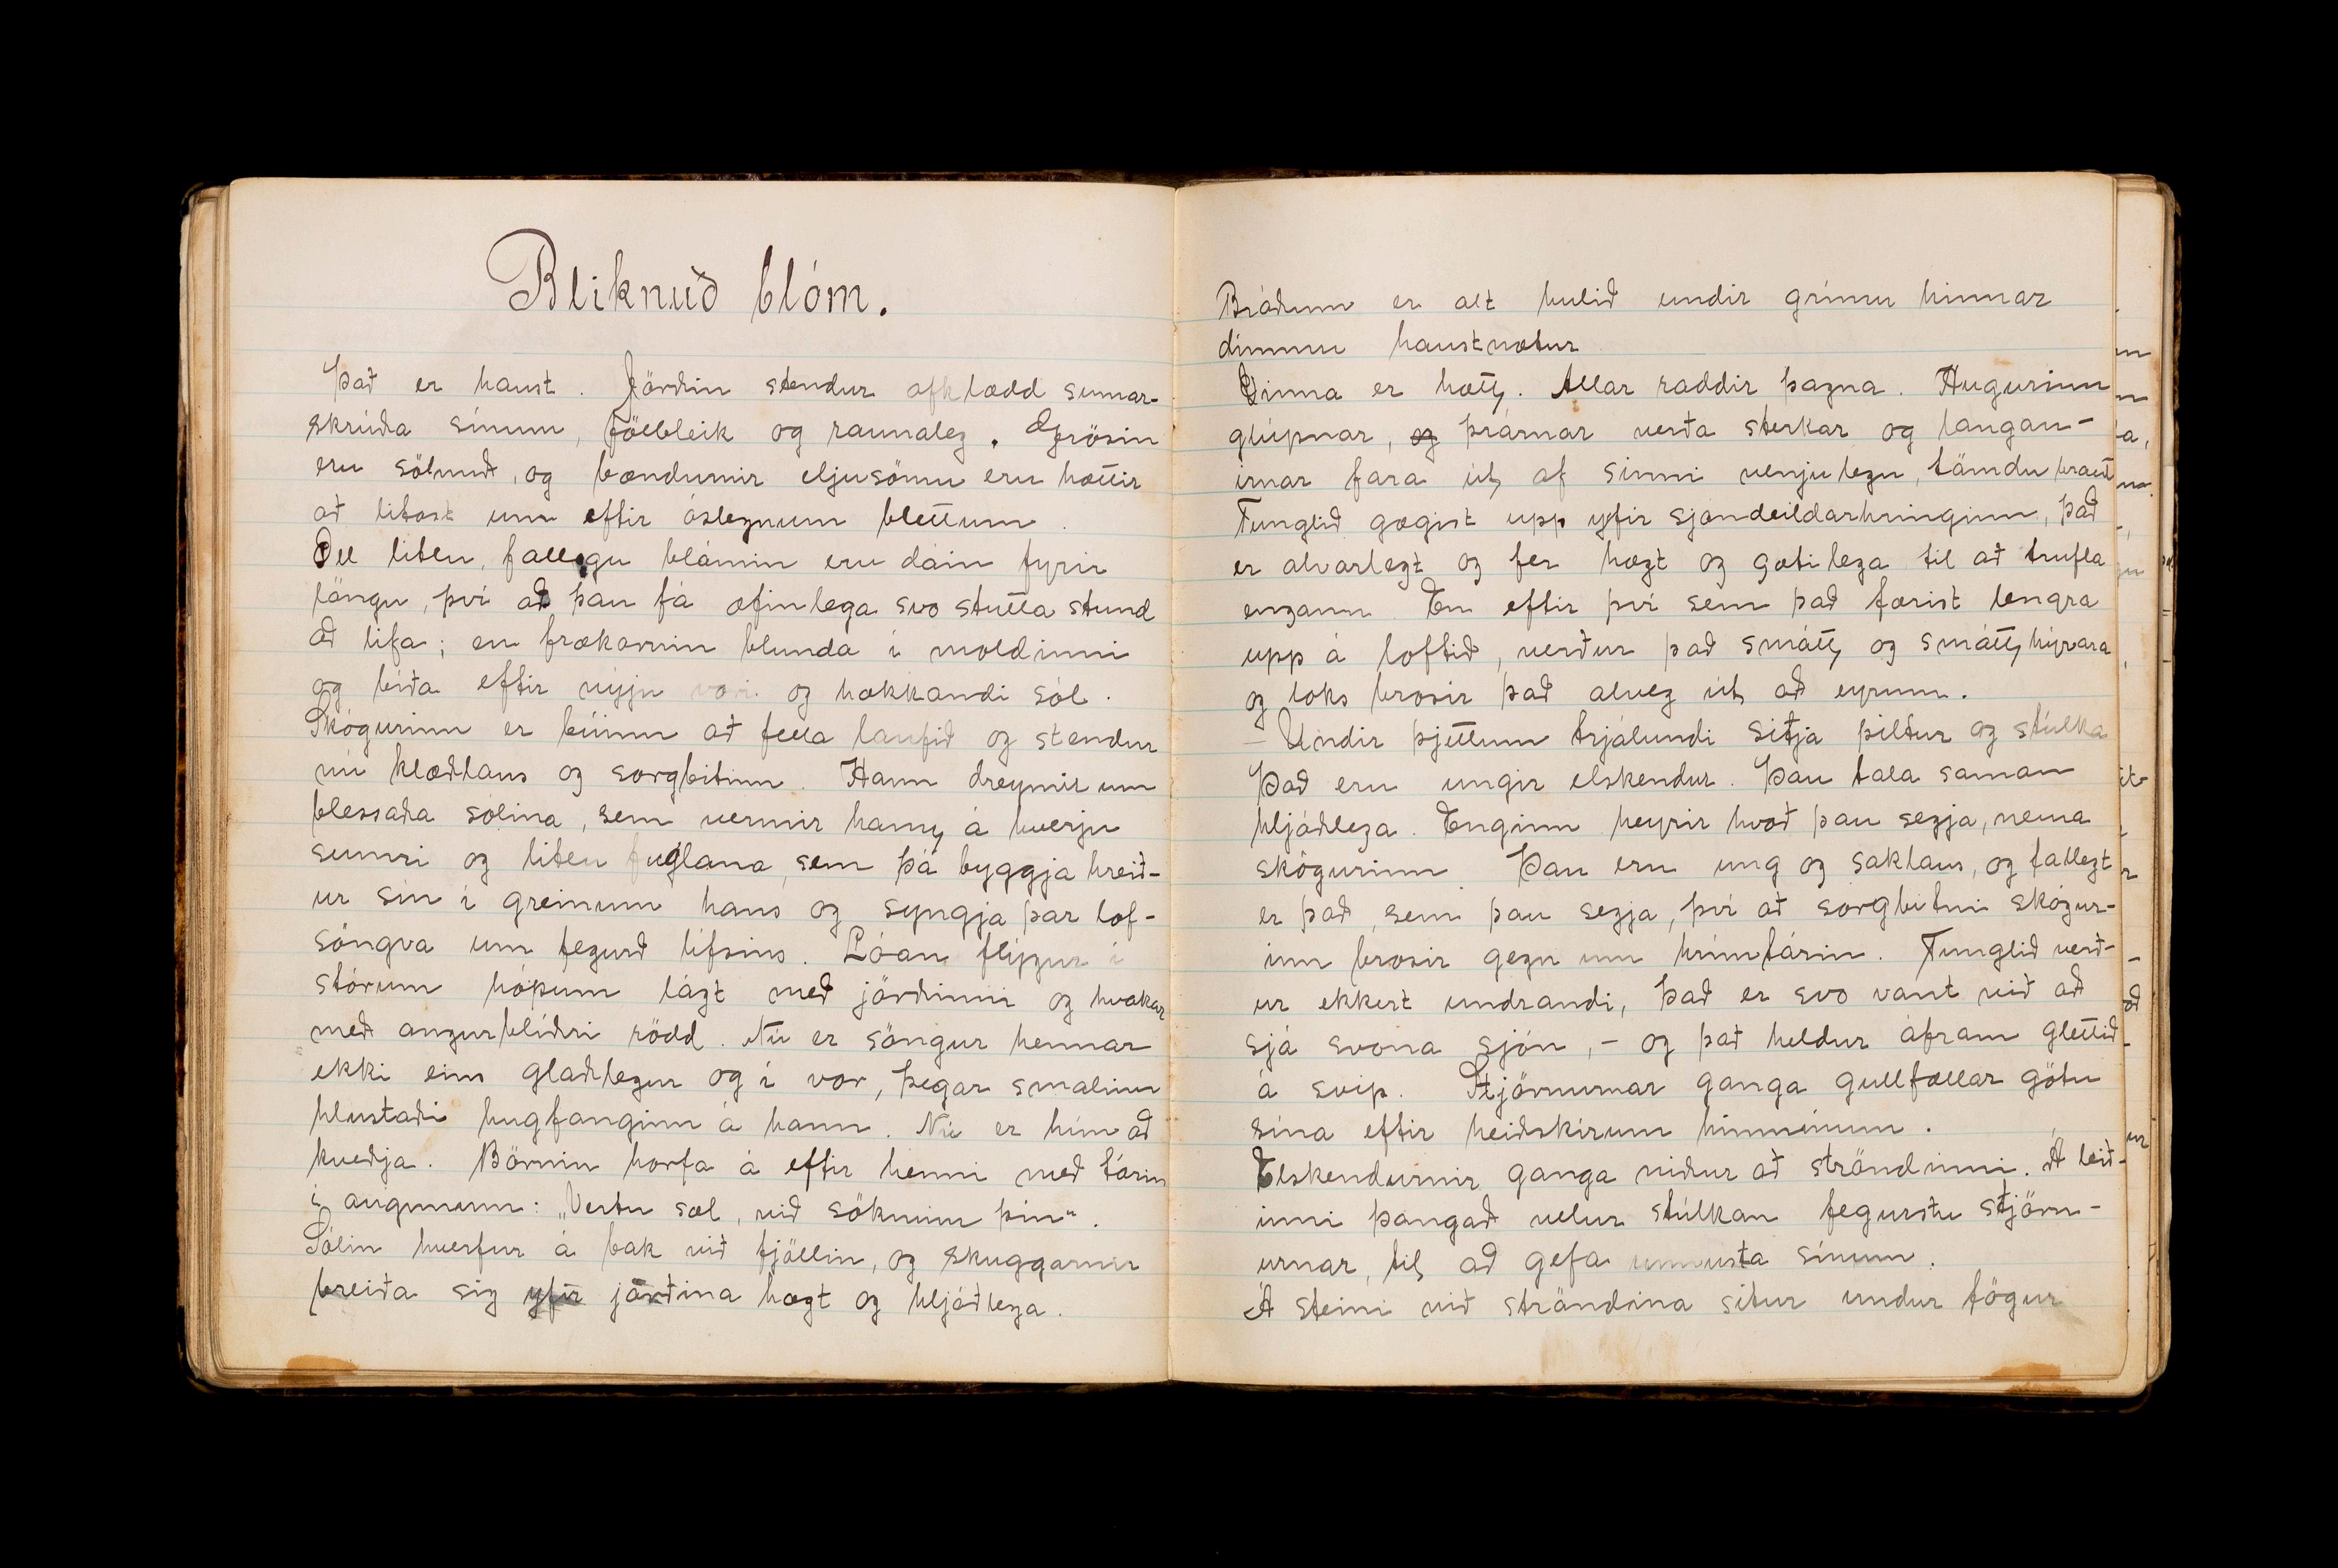 Bliknuð blóm.
Það er haust. Jörðin stendur afklædd sumar-
skrúða sínum, fölbleik og raunaleg. Grösin
eru sölnuð, og bændurnir eljusömu eru hættir
að litast um eftir óslegnum blettum.
Öll litlu, fallegu blómin eru dáin fyrir
löngu, því að þau fá æfinlega svo stutta stund
að lifa; en frækornin blunda í moldinni
og bíða eftir nýju vori og hækkandi sól.
Skógurinn er búinn að fella laufið og stendur
nú klæðlaus og sorgbitinn. Hann dreymir um
blessaða sólina, sem vermir hann á hverju
sumri og litlu fuglana, sem þá byggja hreið-
ur sín í greinum hans og syngja þar lof-
söngva um fegurð lífsins. Lóan flýgur í
stórum hópum lágt með jörðinni og kvakar
með angurblíðri rödd. Nú er söngur hennar
ekki eins glaðlegur og í vor, þegar smalinn
hlustaði hugfanginn á hann. Nú er hún að
kveðja. Börnin horfa á eftir henni með tárin
í augunum: „Vertu sæl, við söknum þín“.
Sólin hverfur á bak við fjöllin, og skuggarnir
breiða sig yfir jörðina hægt og hljóðlega.
Bráðum er alt hulið undir grímu hinnar
dimmu haustnætur
Vinna er hætt. Allar raddir þagna. Hugurinn
glúpnar, og þrárnar verða sterkar og langan-
irnar fara út af sinni venjulegu, tömdu braut
Tunglið gægist upp yfir sjóndeildarhringinn, það
er alvarlegt og fer hægt og gætilega til að trufla
engann. En eftir því sem það færist lengra
upp á loftið, verður það smátt og smátt hýrara
og loks brosir það alveg út að eyrum.
- Undir þjettum trjálundi sitja piltur og stúlka
Það eru ungir elskendur. Þau tala saman
hljóðlega. Enginn heyrir hvað þau segja, nema
skógurinn. Þau eru ung og saklaus, og fallegt
er það, sem þau segja, því að sorgbitni skógur-
inn brosir gegn um hrímtárin. Tunglið verð-
ur ekkert undrandi, það er svo vant við að
sjá svona sjón, - og það heldur áfram glettið
á svip. Stjörnurnar ganga gullfallar götu
sína eftir heiðskírum himninum.
Elskendurnir ganga niður að ströndinni. Á leið-
inni þangað velur stúlkan fegurstu stjörn-
urnar, til að gefa unnusta sínum.
Á steini við ströndina situr undur fögur